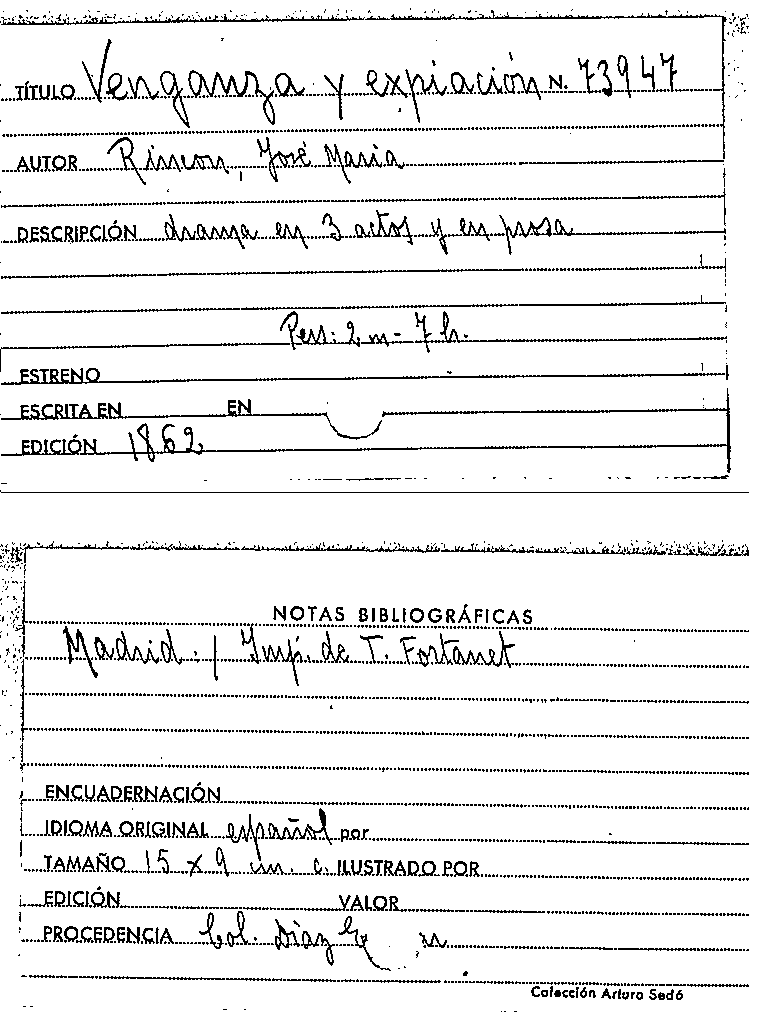 TÍTULO Venganza y expiación N. 73947
AUTOR Rincon, José Maria
DESCRIPCIÓN drama en 3 actos y en prosa
Pers: 2 m - 7 h.
ESTRENO
ESCRITA EN EN
EDICIÓN 1862
NOTAS BIBLIOGRÁFICAS
Madrid. / Imp. de T. Fortanet
ENCUADERNACIÓN
IDIOMA ORIGINAL español por
TAMAÑO 15 x 9 cm. c. ILUSTRADO POR
EDICIÓN VALOR
PROCEDENCIA Col. Díaz
Colección Arturo Sedó